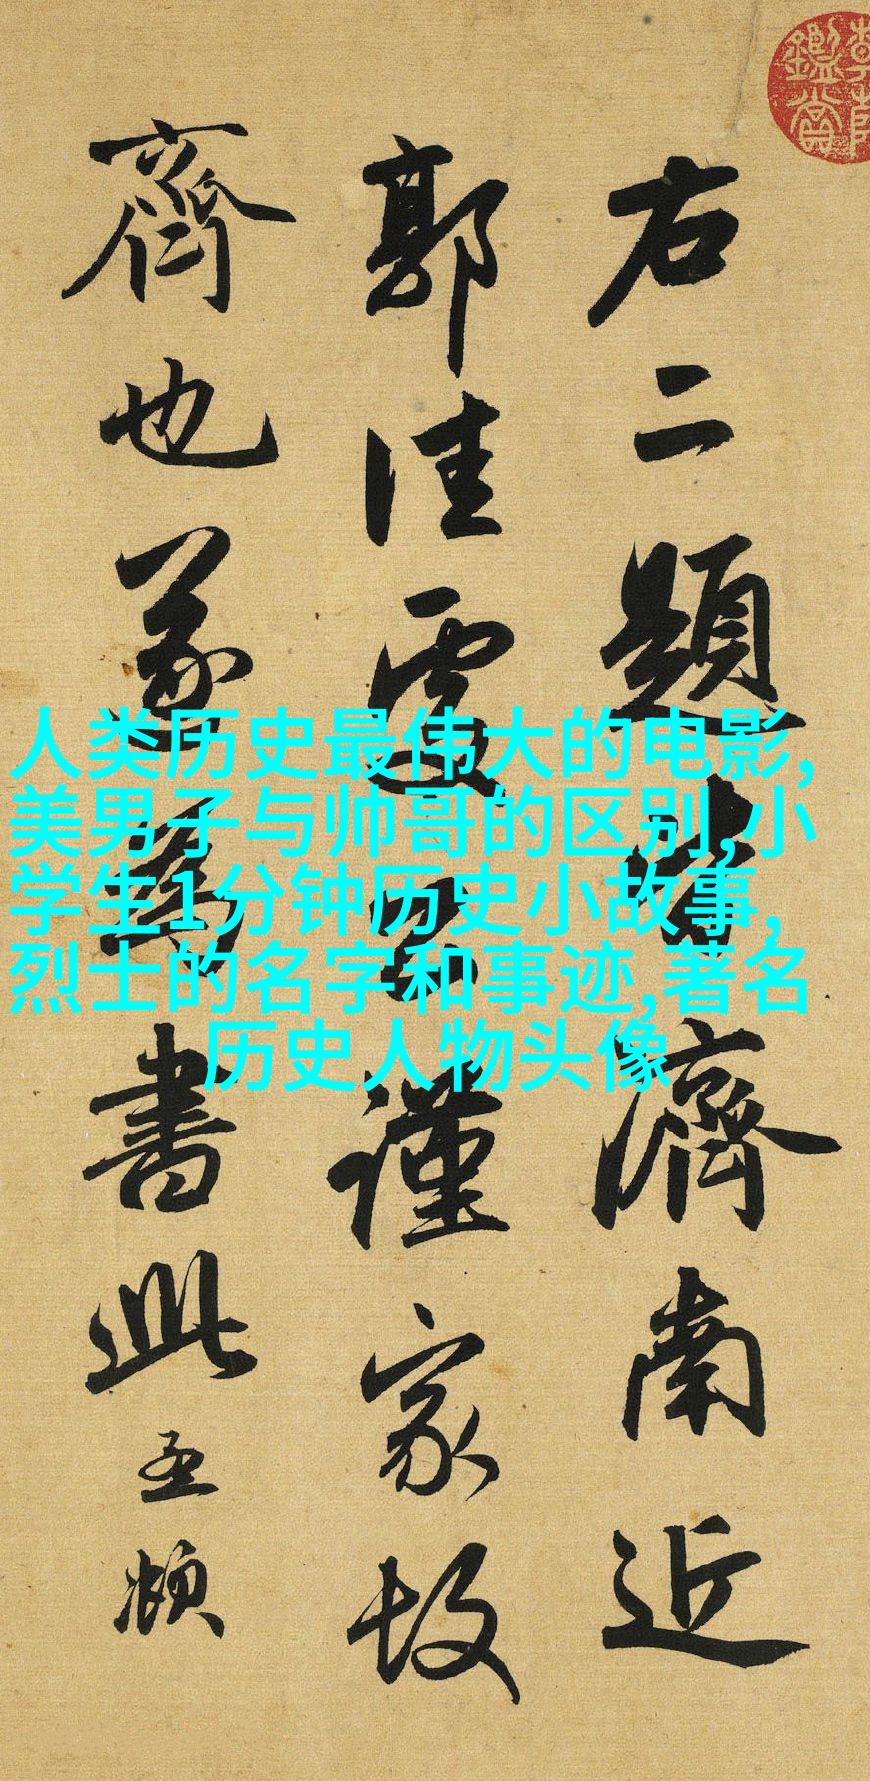 右二題皆濟南近
郭佳處公謹家故
齊也遂為書此孟頫
人类历史最伟大的电影,
美男子与帅哥的区别,小
学生1分钟历史小故事,
烈士的名字和事迹,著名
历史人物头像